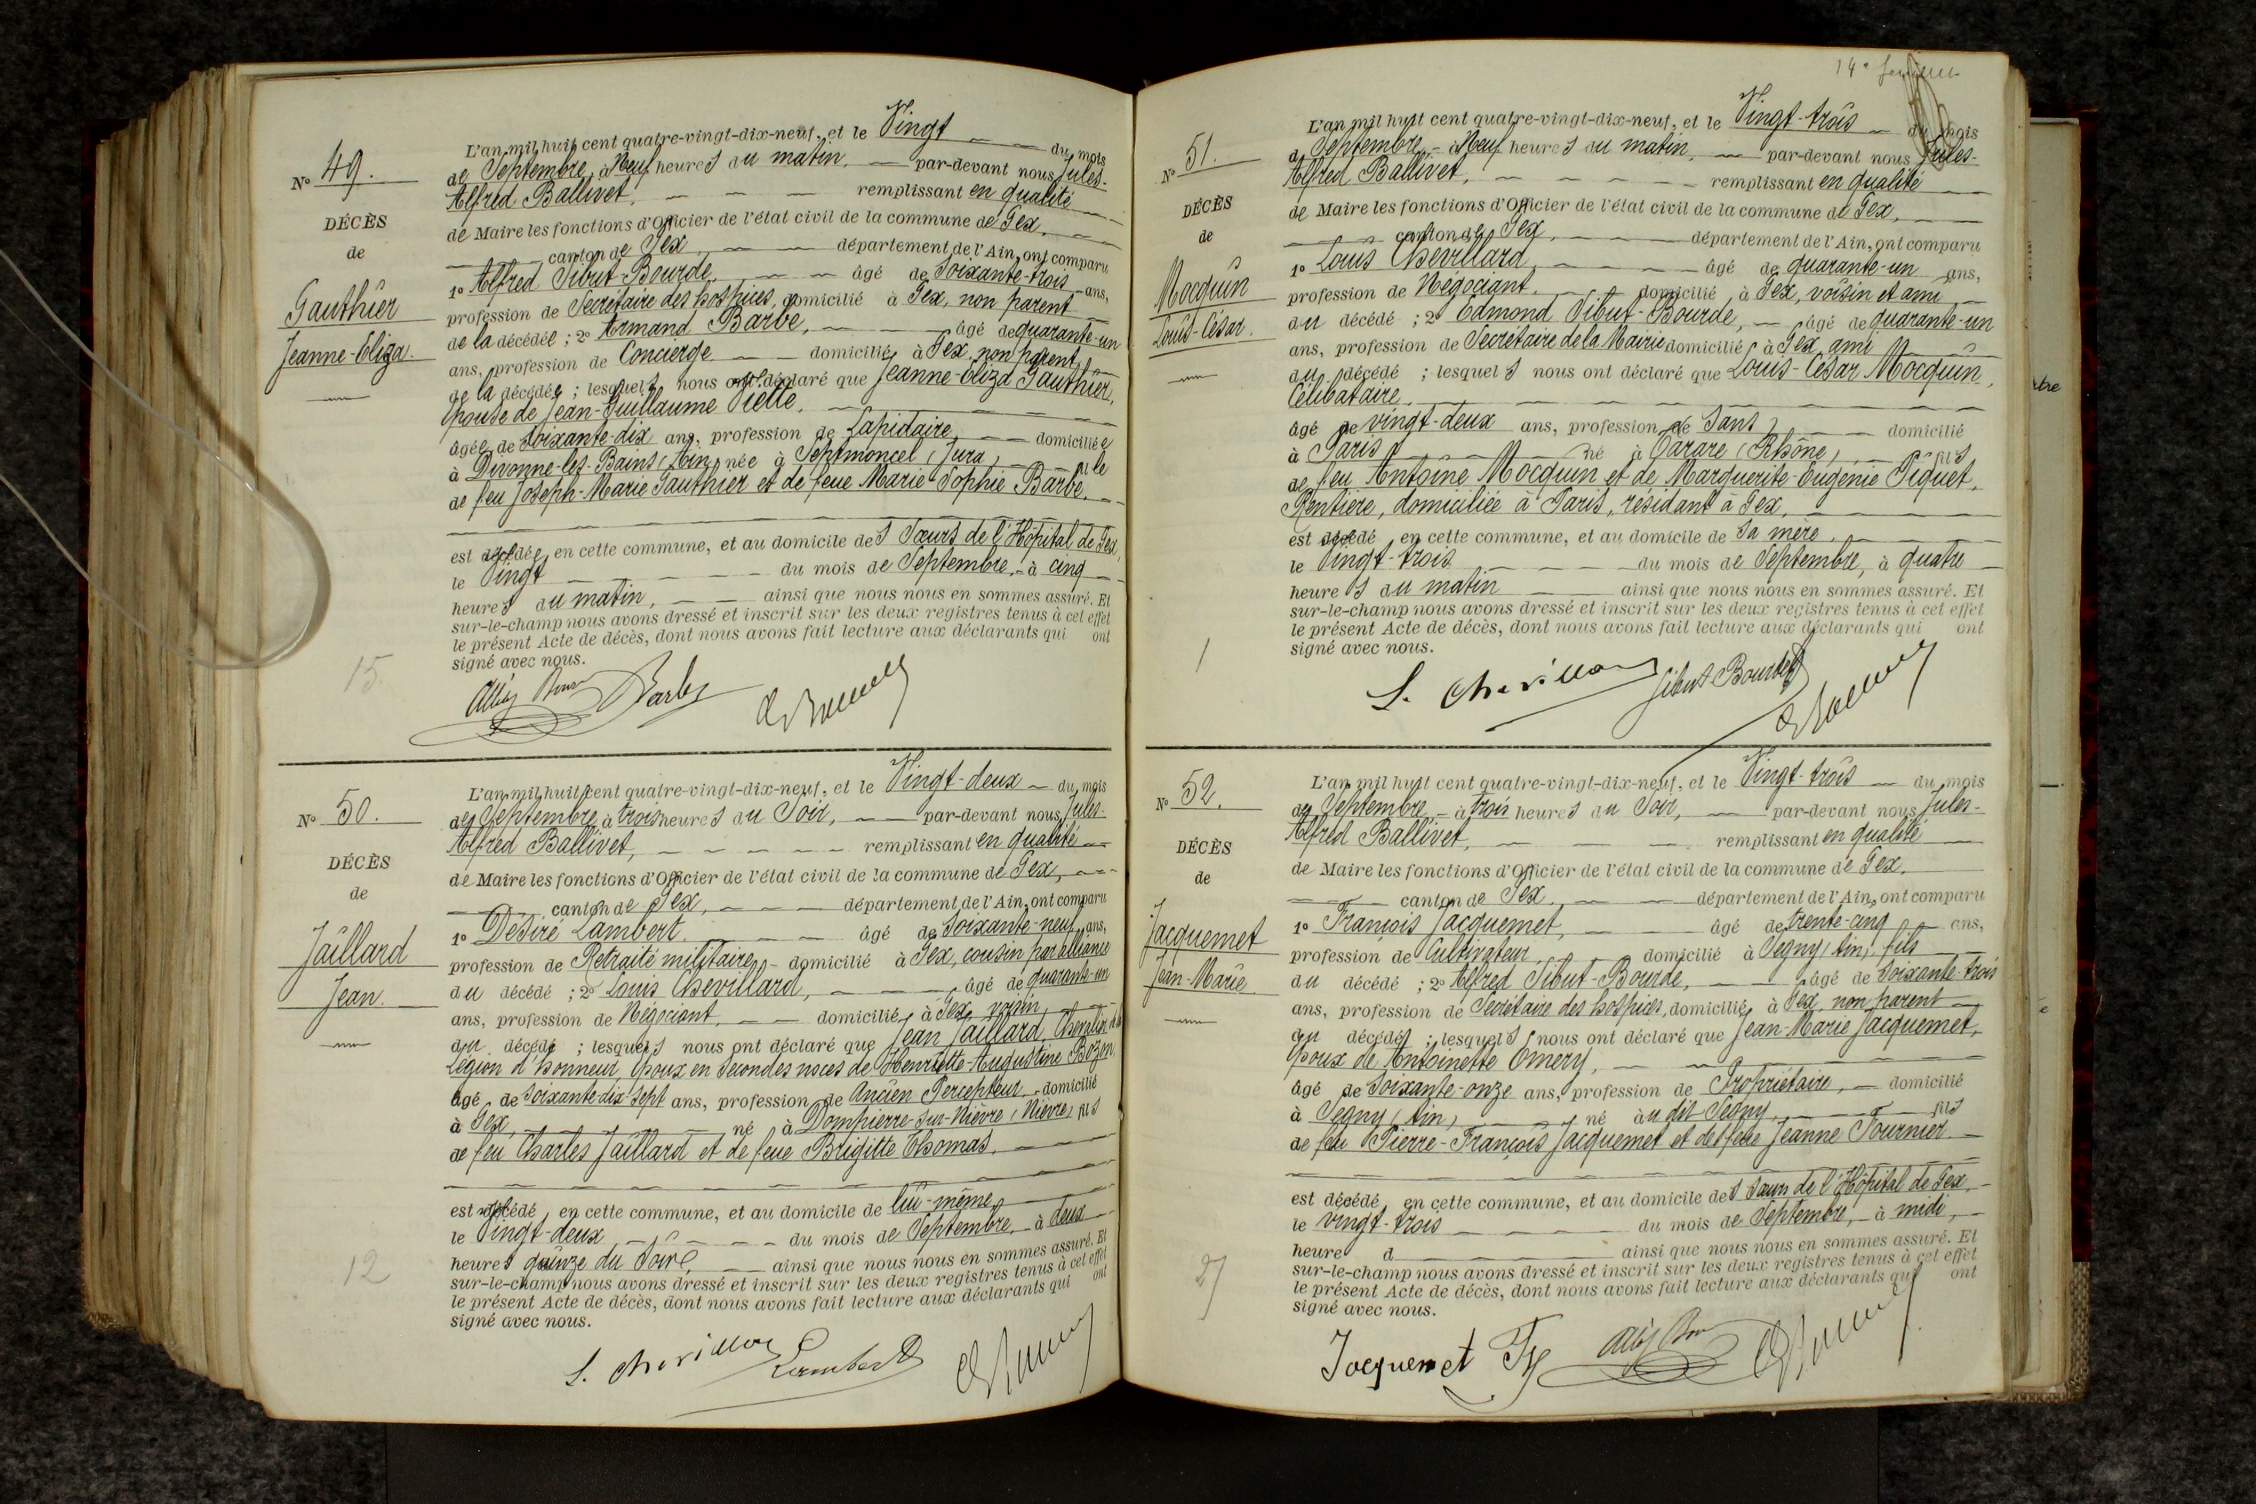 N° 49.
DÉCÈS
de
Gauthier
Jeanne-Eliza.
L'an mil huit cent quatre-vingt-dix-neuf, et le Vingt du mois
de Septembre à Neuf heures du matin, par-devant nous Jules-
Alfred Ballivet, remplissant en qualité
de Maire les fonctions d'Officier de l'état civil de la commune de Gex,
canton de Gex, département de l'Ain, ont comparu
1° Alfred Sibut-Bourde, âgé de Soixante-trois ans,
profession de Secrétaire des hospices, domicilié à Gex, non parent
de la décédée ; 2° Armand Barbe, âgé de quarante-un
ans, profession de Concierge domicilié à Gex, non parent
de la décédée ; lesquels nous ont déclaré que Jeanne-Eliza Gauthier,
Epouse de Jean-Guillaume Vielle,
âgée de Soixante-dix ans, profession de Lapidaire, domiciliée
à Divonne-les-Bains (Ain) née à Septmoncel (Jura) fille
de feu Joseph-Marie Gauthier et de feue Marie-Sophie Barbe.
est décédée en cette commune, et au domicile des Sœurs de l'Hôpital de Gex,
le Vingt du mois de Septembre, à cinq
heures du matin, ainsi que nous nous en sommes assuré. Et
sur-le-champ nous avons dressé et inscrit sur les deux registres tenus à cet effet
le présent Acte de décès, dont nous avons fait lecture aux déclarants qui ont
signé avec nous.
15.
Barbe
N° 50.
DÉCÈS
de
Jaillard
Jean.
L'an mil huit cent quatre-vingt-dix-neuf, et le Vingt-deux du mois
de Septembre à trois heures du Soir, par-devant nous Jules-
Alfred Ballivet, remplissant en qualité
de Maire les fonctions d'Officier de l'état civil de la commune de Gex,
canton de Gex, département de l'Ain, ont comparu
1° Désiré Lambert, âgé de Soixante-neuf ans,
profession de Retraité militaire domicilié à Gex, cousin par alliance
du décédé ; 2° Louis Chevillard, âgé de quarante-un
ans, profession de Négociant, domicilié à Gex, voisin
du décédé ; lesquels nous ont déclaré que Jean Jaillard, Chevalier de la
Légion d'honneur, Epoux en Secondes noces de Henriette-Augustine Bozon,
âgé de Soixante-dix-sept ans, profession de Ancien Percepteur domicilié
à Gex, né à Dompierre-sur-Nièvre (Nièvre) fils
de feu Charles Jaillard et de feue Brigitte Thomas.
est décédé en cette commune, et au domicile de lui-même
le Vingt-deux du mois de Septembre, à deux
heures quinze du Soir, ainsi que nous nous en sommes assuré. Et
sur-le-champ nous avons dressé et inscrit sur les deux registres tenus à cet effet
le présent Acte de décès, dont nous avons fait lecture aux déclarants qui ont
signé avec nous.
12
L. Chevillard Lambert
14e
N° 51.
DÉCÈS
de
Mocquin
Louis-César.
L'an mil huit cent quatre-vingt-dix-neuf, et le Vingt-trois du mois
de Septembre, à Neuf heures du matin, par-devant nous Jules-
Alfred Ballivet, remplissant en qualité
de Maire les fonctions d'Officier de l'état civil de la commune de Gex,
canton de Gex, département de l'Ain, ont comparu
1° Louis Chevillard, âgé de quarante-un ans,
profession de Négociant, domicilié à Gex, voisin et ami
du décédé ; 2° Edmond Sibut-Bourde, âgé de quarante-un
ans, profession de Secrétaire de la Mairie domicilié à Gex, ami
du décédé ; lesquels nous ont déclaré que Louis-César Mocquin,
Célibataire.
âgé de vingt-deux ans, profession de Sans, domicilié
à Paris né à Tarare (Rhône) fils
de feu Antoine Mocquin et de Marguerite-Eugénie Piquet,
Rentière, domiciliée à Paris, résidant à Gex,
est décédé en cette commune, et au domicile de Sa mère,
le Vingt-trois du mois de Septembre, à quatre
heures du matin ainsi que nous nous en sommes assuré. Et
sur-le-champ nous avons dressé et inscrit sur les deux registres tenus à cet effet
le présent Acte de décès, dont nous avons fait lecture aux déclarants qui ont
signé avec nous.
1
L. Chevillard Sibut-Bourde
N° 52.
DÉCÈS
de
Jacquemet
Jean-Marie
L'an mil huit cent quatre-vingt-dix-neuf, et le Vingt-trois du mois
de Septembre, à trois heures du Soir, par-devant nous Jules-
Alfred Ballivet, remplissant en qualité
de Maire les fonctions d'Officier de l'état civil de la commune de Gex,
canton de Gex, département de l'Ain, ont comparu
1° François Jacquemet, âgé de trente-cinq ans,
profession de Cultivateur, domicilié à Segny (Ain), fils
du décédé ; 2° Alfred Sibut-Bourde, âgé de Soixante-trois
ans, profession de Secrétaire des hospices, domicilié à Gex, non parent
du décédé ; lesquels nous ont déclaré que Jean-Marie Jacquemet,
Epoux de Antoinette Emery,
âgé de Soixante-onze ans, profession de Propriétaire, domicilié
à Segny (Ain) né au dit Segny, fils
de feu Pierre-François Jacquemet et de feue Jeanne Fournier.
est décédé en cette commune, et au domicile des Sœurs de l'Hôpital de Gex,
le vingt-trois du mois de Septembre, à midi,
heure d ainsi que nous nous en sommes assuré. Et
sur-le-champ nous avons dressé et inscrit sur les deux registres tenus à cet effet
le présent Acte de décès, dont nous avons fait lecture aux déclarants qui ont
signé avec nous.
27
Jacquemet